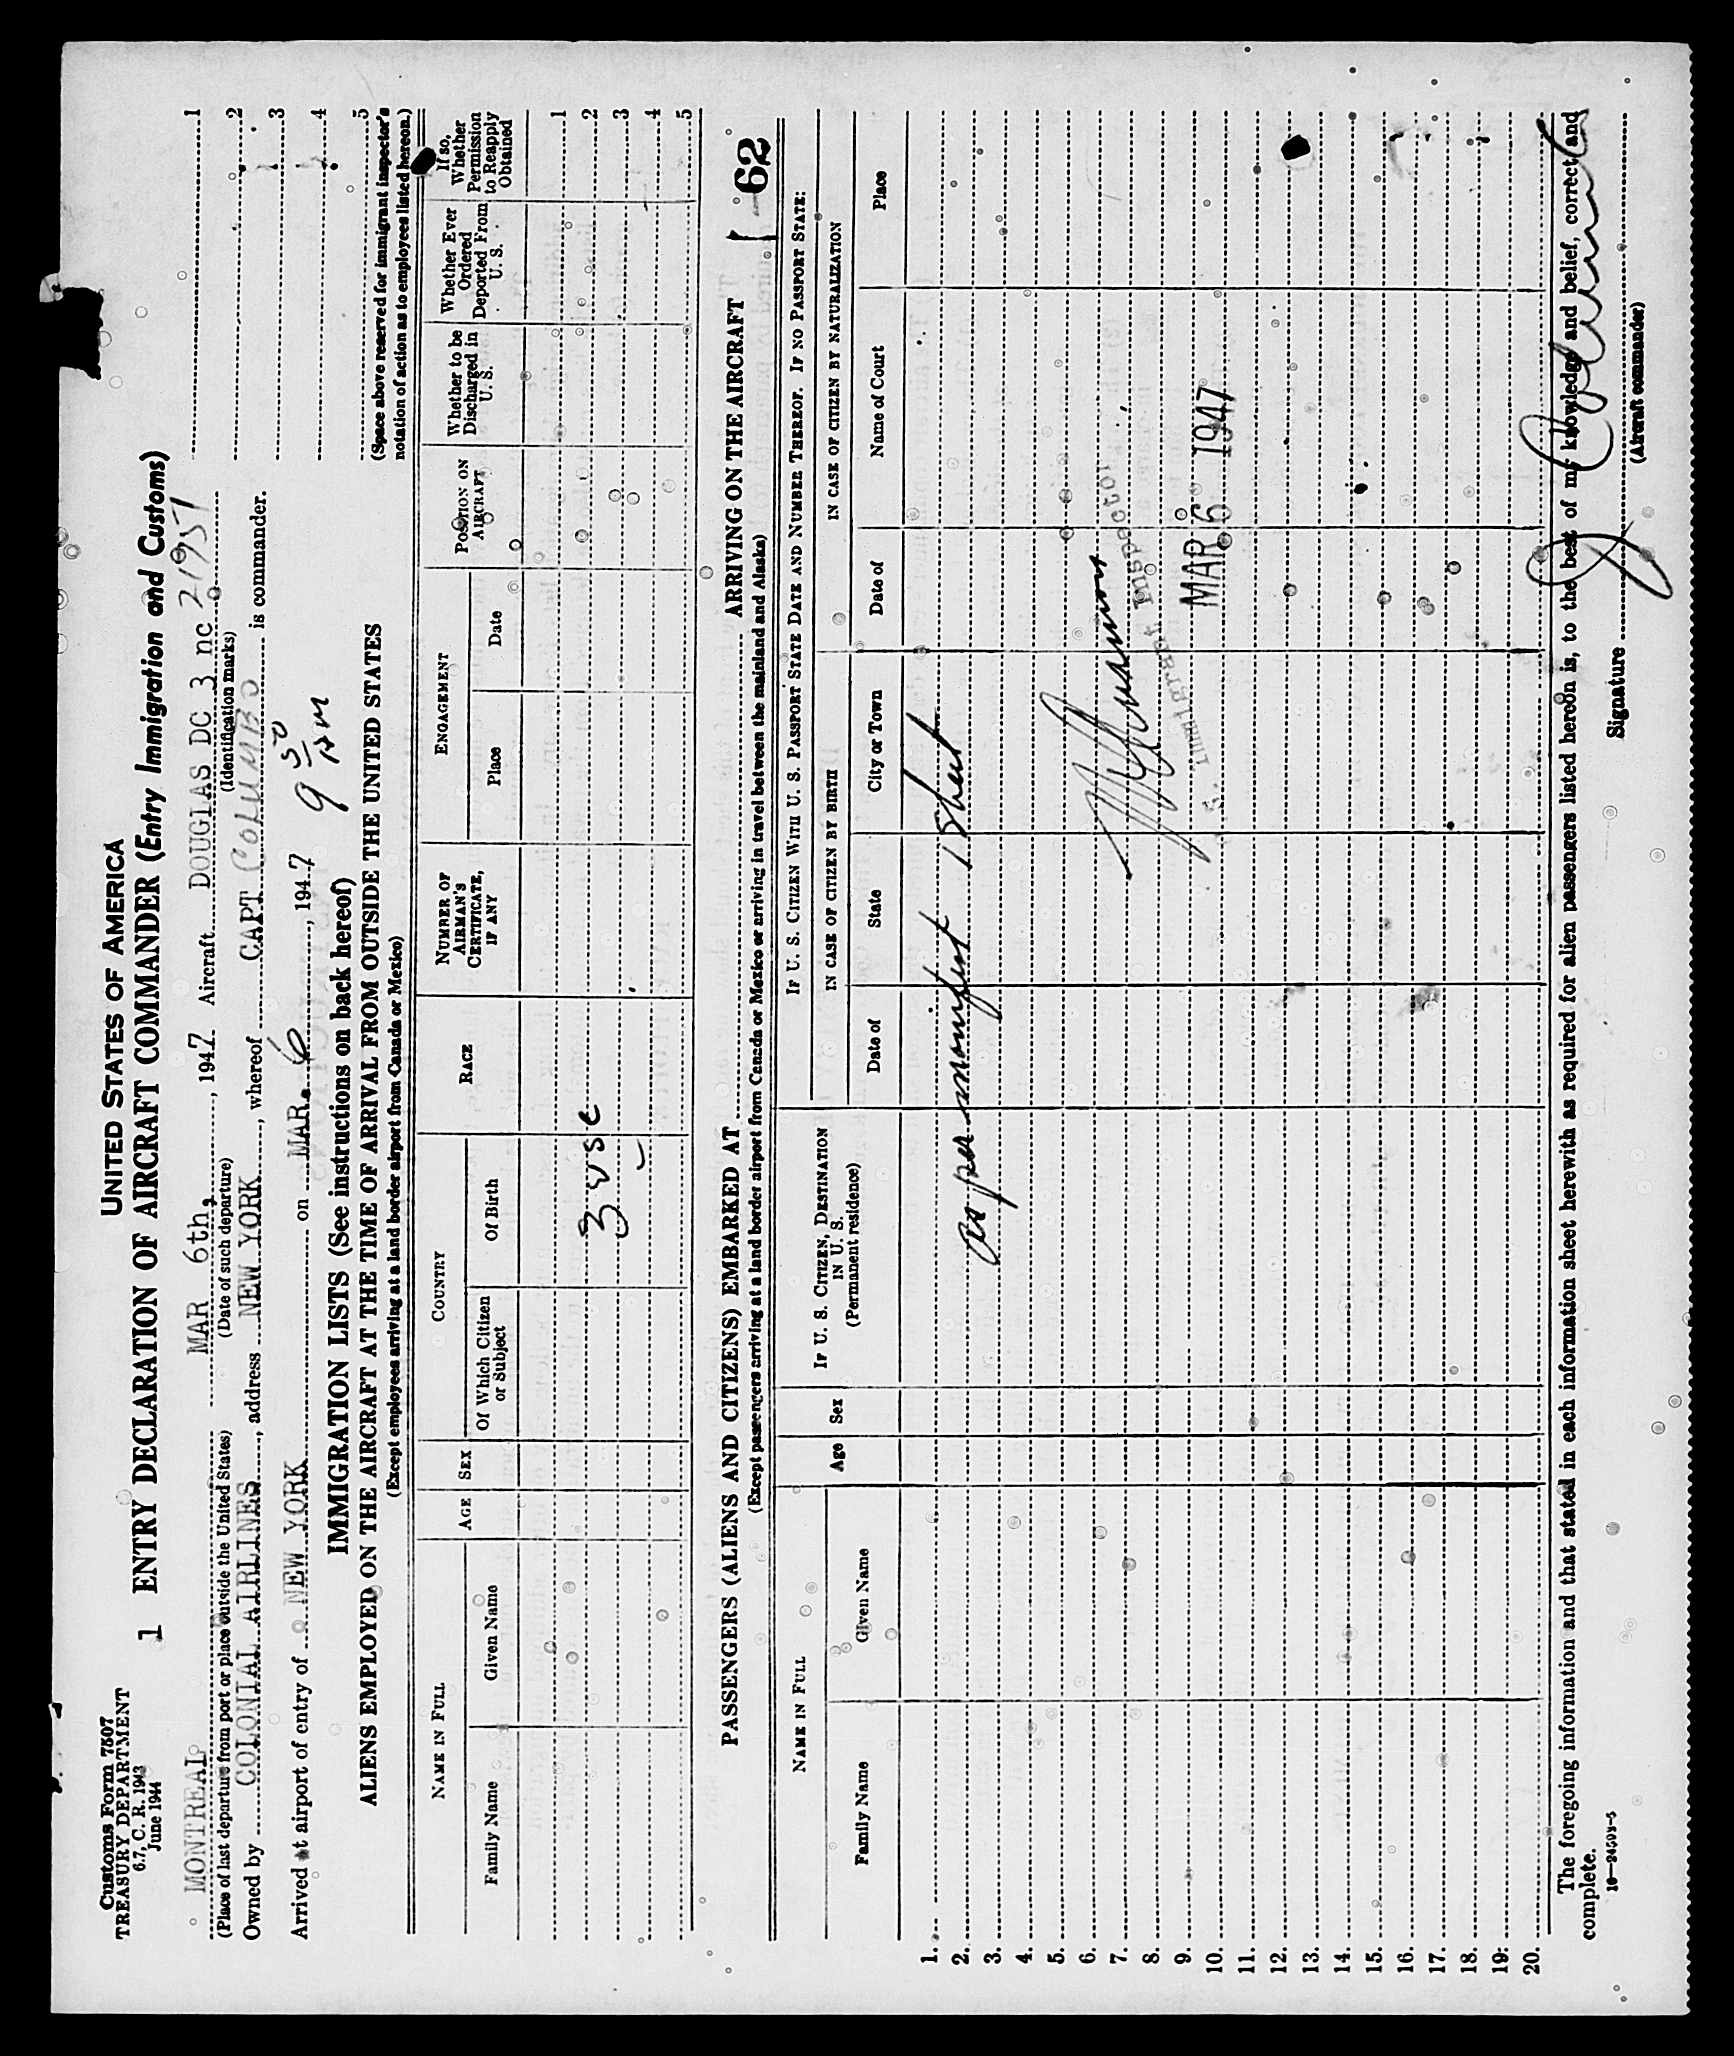 Customs Form 7507
TREASURY DEPARTMENT
6.7, C. R. 1943
June 1944
UNITED STATES OF AMERICA
1 ENTRY DECLARATION OF AIRCRAFT COMMANDER (Entry Immigration and Customs)
MONTREAL MAR 6th, 1947 Aircraft DOUGLAS DC 3 nc 21957
(Place of last departure from port or place outside the United States) (Date of such departure) (Identification marks)
Owned by COLONIAL AIRLINES, address NEW YORK, whereof CAPT COLUMBO is commander.
Arrived at airport of entry of NEW YORK on MAR. 6, 1947 9 50 AM
1
2
3
4
5
(Space above reserved for immigrant inspector's
notation of action as to employees listed hereon.)
IMMIGRATION LISTS (See instructions on back hereof)
ALIENS EMPLOYED ON THE AIRCRAFT AT THE TIME OF ARRIVAL FROM OUTSIDE THE UNITED STATES
(Except employees arriving at a land border airport from Canada or Mexico)
NAME IN FULL
Family Name
Given Name
AGE
SEX
COUNTRY
Of Which Citizen or Subject
Of Birth
RACE
NUMBER OF AIRMAN'S CERTIFICATE, IF ANY
ENGAGEMENT
Place
Date
POSITION ON AIRCRAFT
Whether to be Discharged in U. S.
Whether Ever Ordered Deported From U. S.
If so, Whether Permission to Reapply Obtained
1
2
3
4
5
3 USC
PASSENGERS (ALIENS AND CITIZENS) EMBARKED AT ARRIVING ON THE AIRCRAFT
62
(Except passengers arriving at a land border airport from Canada or Mexico or arriving in travel between the mainland and Alaska)
NAME IN FULL
Family Name
Given Name
Age
Sex
IF U. S. CITIZEN, DESTINATION IN U. S.
(Permanent residence)
IF U. S. CITIZEN WITH U. S. PASSPORT STATE DATE AND NUMBER THEREOF. IF NO PASSPORT STATE:
IN CASE OF CITIZEN BY BIRTH
IN CASE OF CITIZEN BY NATURALIZATION
Date of
State
City or Town
Date of
Name of Court
Place
1.
2.
3.
4.
5.
6.
7.
8.
9.
10.
11.
12.
13.
14.
15.
16.
17.
18.
19.
20.
as per manifest 1 Sheet
U.S. Immigrant Inspector
MAR 6 1947
The foregoing information and that stated in each information sheet herewith as required for alien passengers listed hereon is, to the best of my knowledge and belief, correct and
complete.
16—24593-5
Signature
(Aircraft commander)